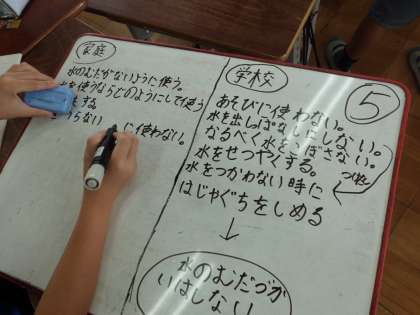 家庭
水のむだがないように使う。
を使うならどのようにして使う
する
らない
に使わない。
学校
5
あそびに使わない。
水を出しぱなしにしない。
なるべく水をこぼさない。
水をせつやくする。
水をつかわない時に
はじゃぐちをしめる
↓
水のむだづか
いはしない